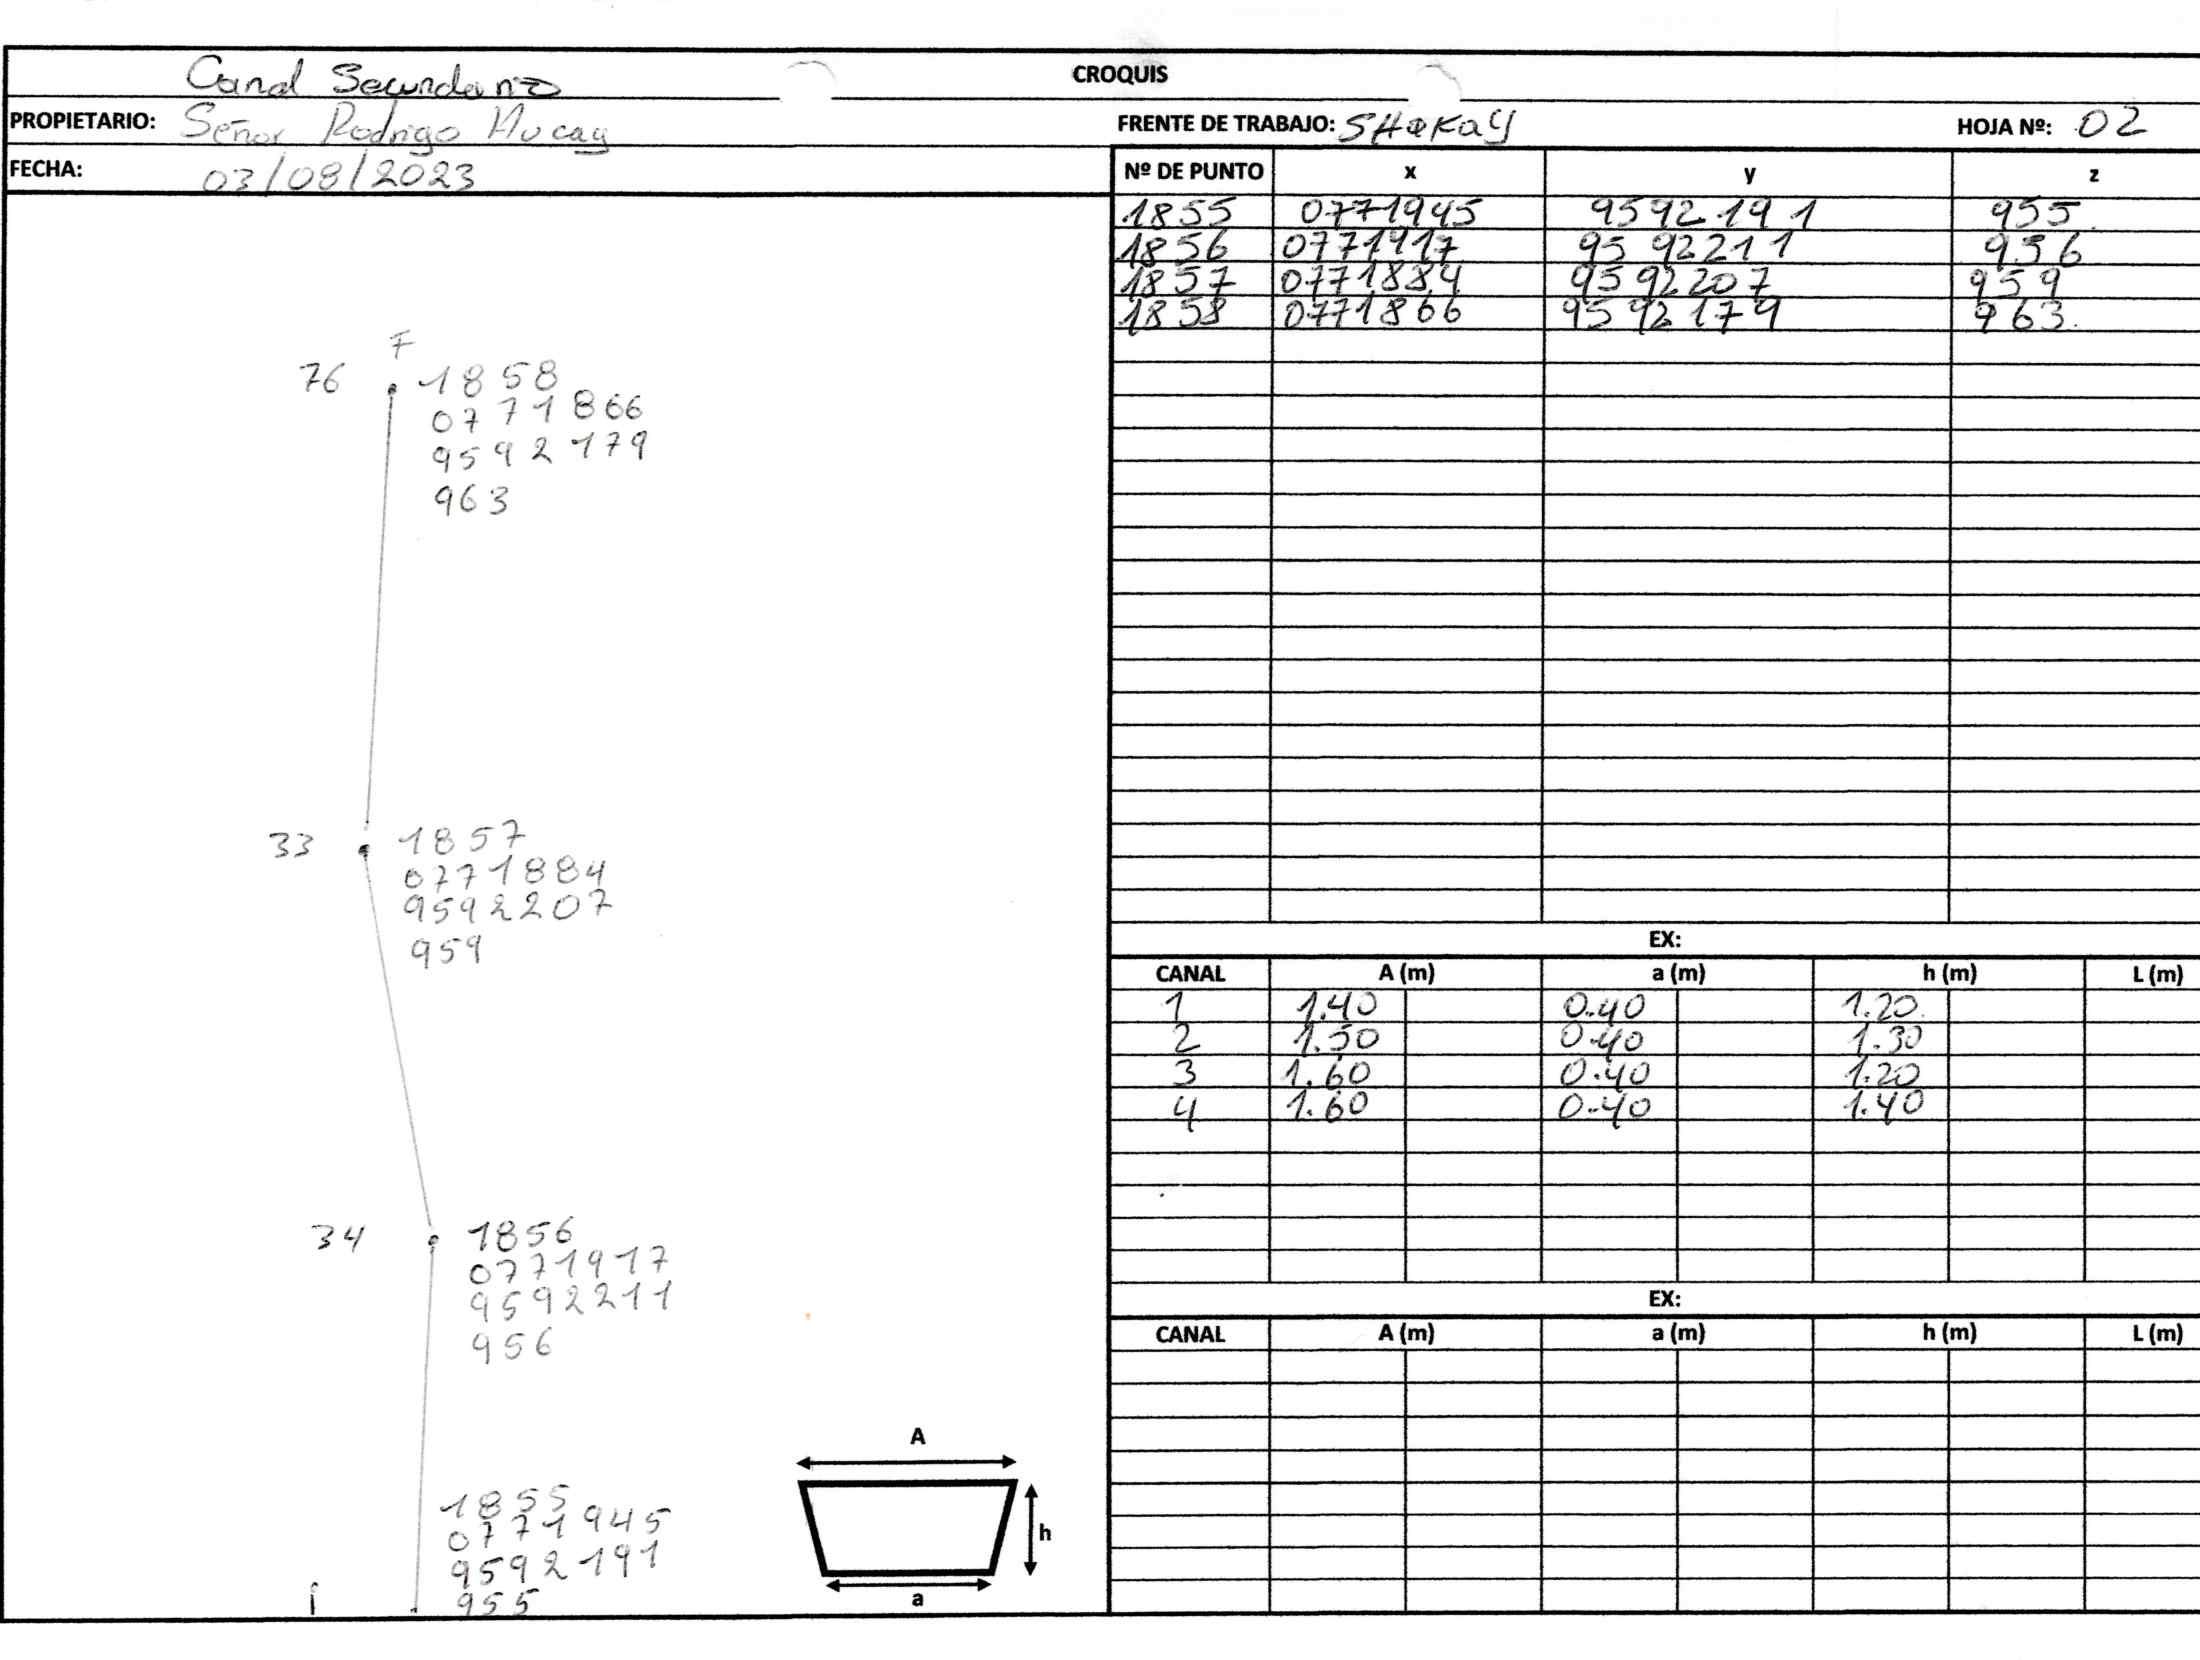 Canal Secundario
CROQUIS
PROPIETARIO: Señor Rodrigo
FRENTE DE TRABAJO: SHAKAY
HOJA Nº: 02
FECHA: 03/08/2023
Nº DE PUNTO x y z
1855 0771945 9592191 955
1856 0771917 9592211 956
1857 0771884 9592207 959
1858 0771866 9592179 963
F
76 1858
0771866
9592179
963
33 1857
0771884
9592207
959
34 1856
0771917
9592211
956
1855
0771945
9592191
955
i
A
h
a
EX:
CANAL A (m) a (m) h (m) L (m)
1 1.40 0.40 1.20
2 1.50 0.40 1.30
3 1.60 0.40 1.20
4 1.60 0.40 1.40
EX:
CANAL A (m) a (m) h (m) L (m)